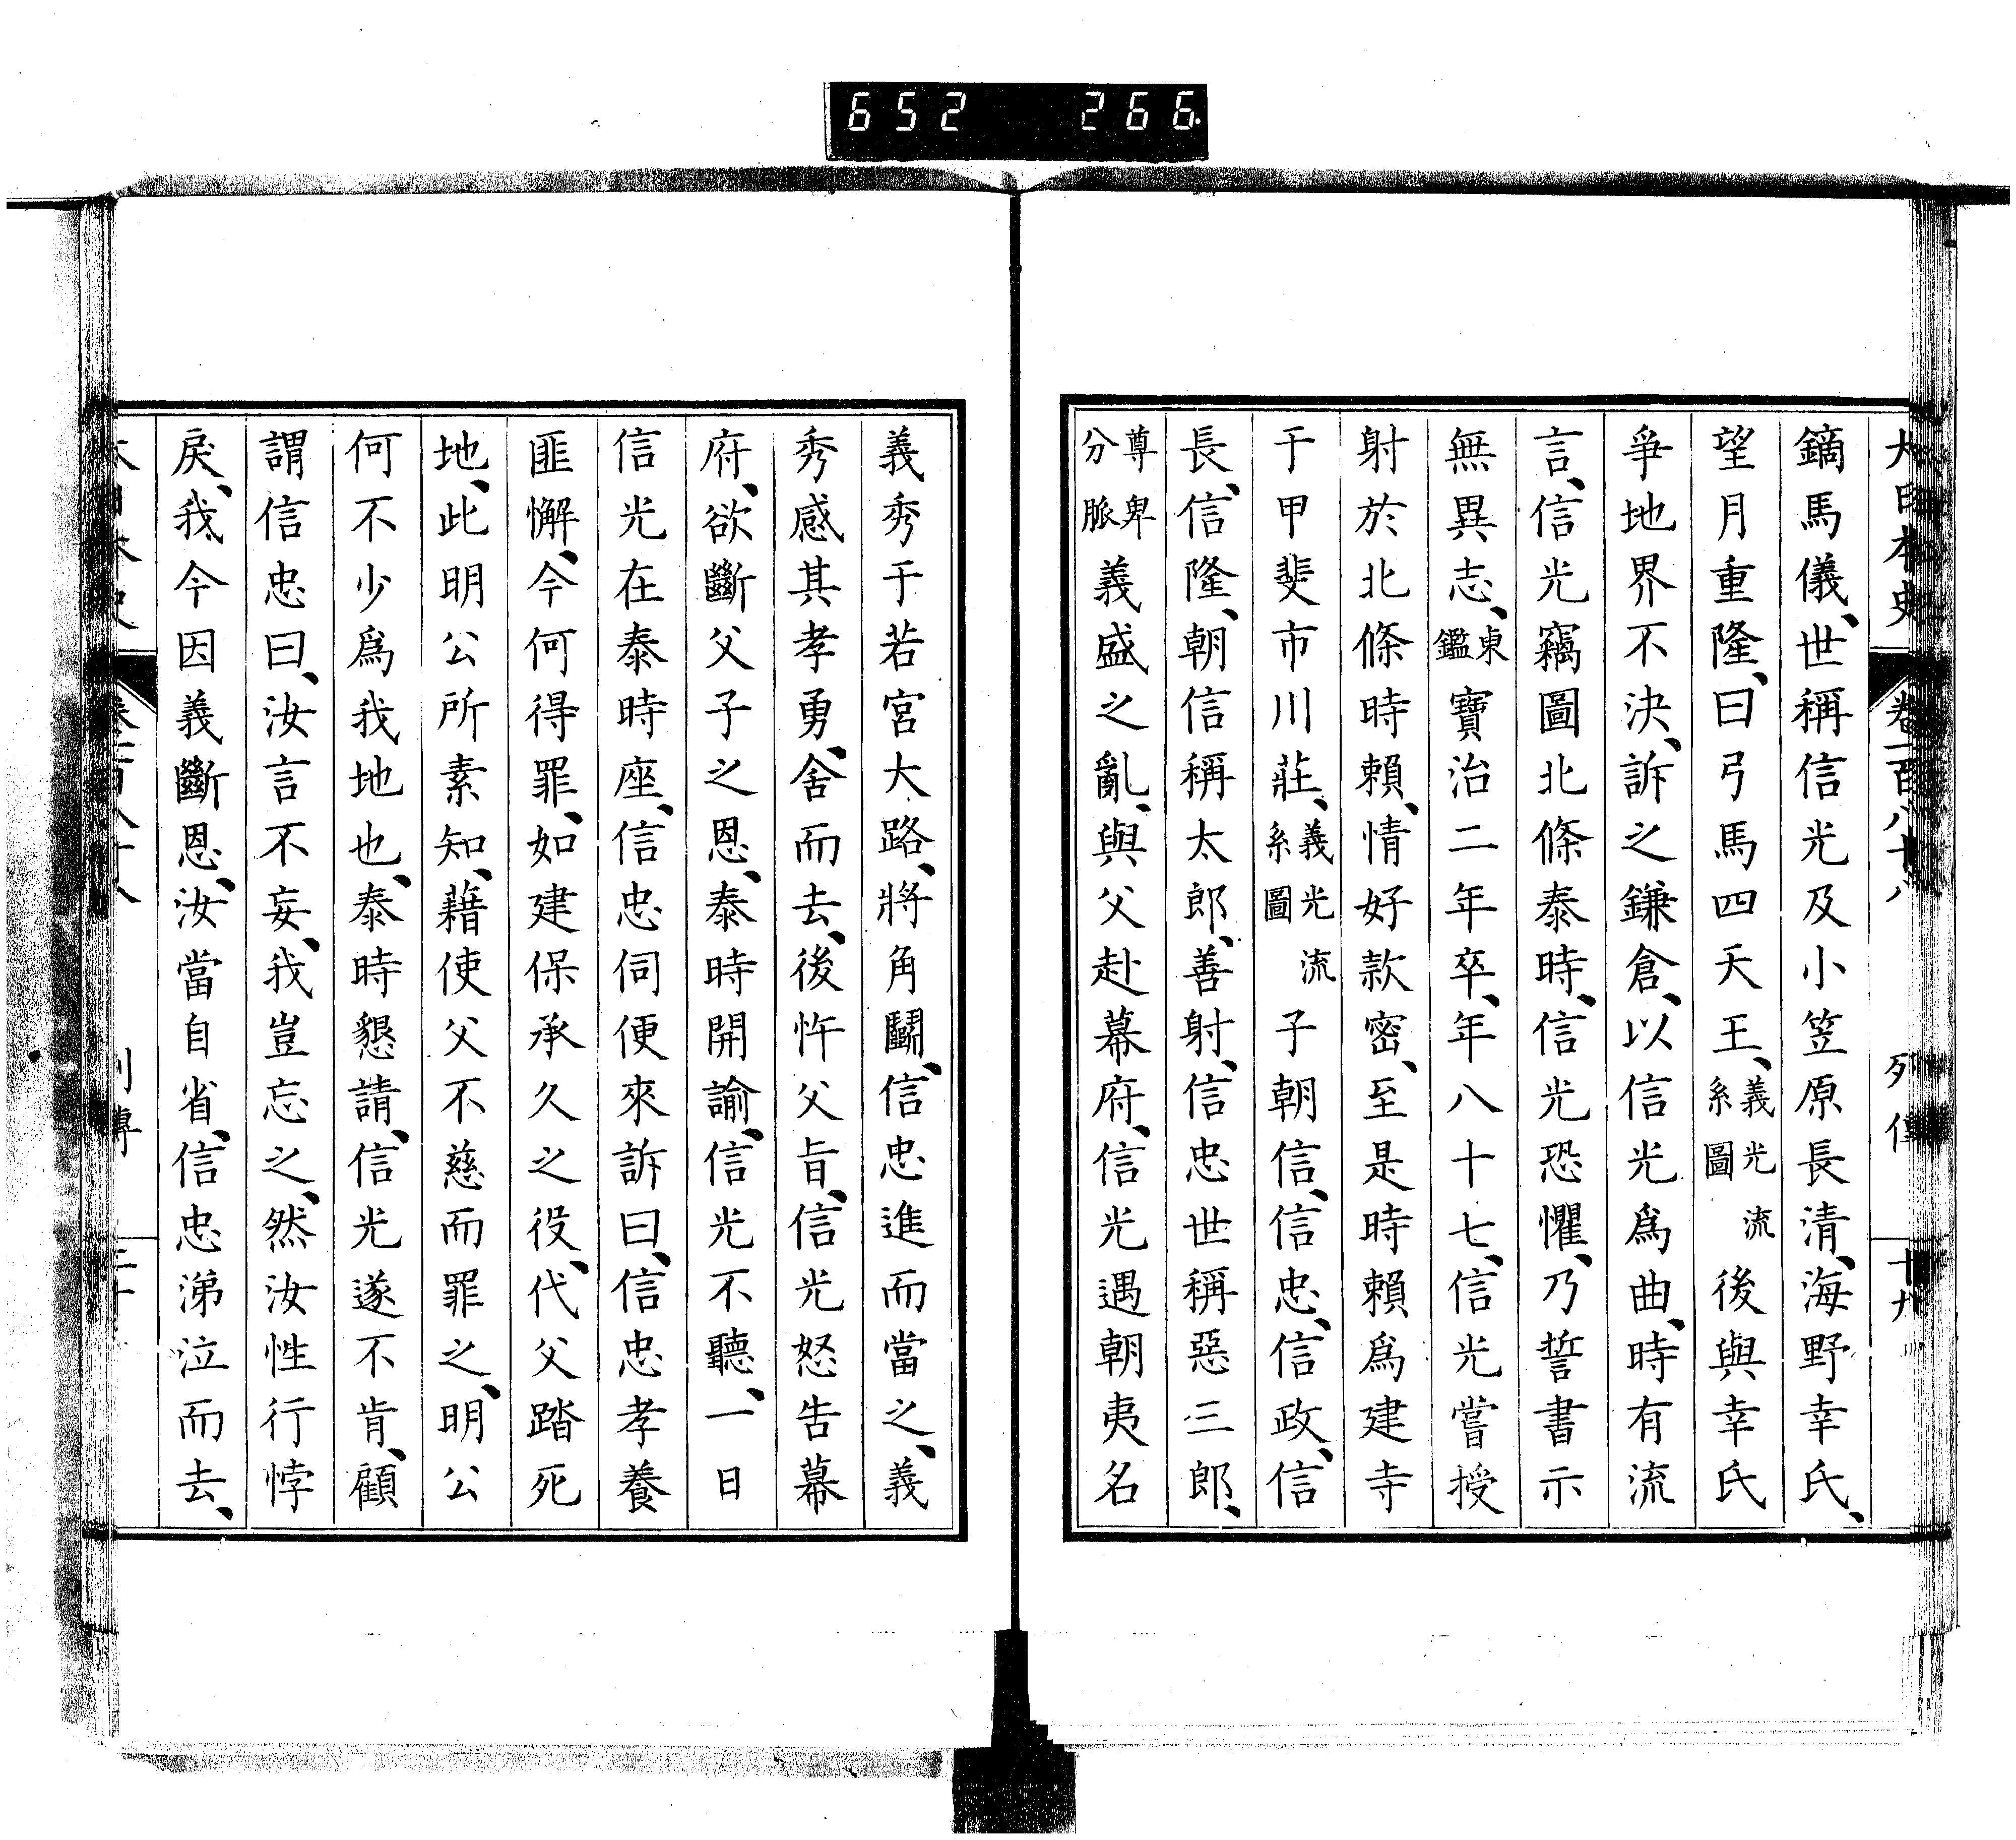 652 266
大日本史 卷一百八十八 列傳 十九
鏑馬儀、世稱信光及小笠原長清、海野幸氏、
望月重隆、曰弓馬四天王、義光流系圖後與幸氏
爭地界不決、訴之鎌倉、以信光爲曲、時有流
言、信光竊圖北條泰時、信光恐懼、乃誓書示
無異志、東鑑寶治二年卒、年八十七、信光嘗授
射於北條時賴、情好款密、至是時賴爲建寺
于甲斐市川莊、義光流系圖子朝信、信忠、信政、信
長、信隆、朝信稱太郎、善射、信忠世稱惡三郎、
尊卑分脈義盛之亂、與父赴幕府、信光遇朝夷名
義秀于若宮大路、將角鬭、信忠進而當之、義
秀感其孝勇、舍而去、後忤父旨、信光怒告幕
府、欲斷父子之恩、泰時開諭、信光不聽、一日
信光在泰時座、信忠伺便來訴曰、信忠孝養
匪懈、今何得罪、如建保承久之役、代父踏死
地、此明公所素知、藉使父不慈而罪之、明公
何不少爲我地也、泰時懇請、信光遂不肯、顧
謂信忠曰、汝言不妄、我豈忘之、然汝性行悖
戾、我今因義斷恩、汝當自省、信忠涕泣而去、